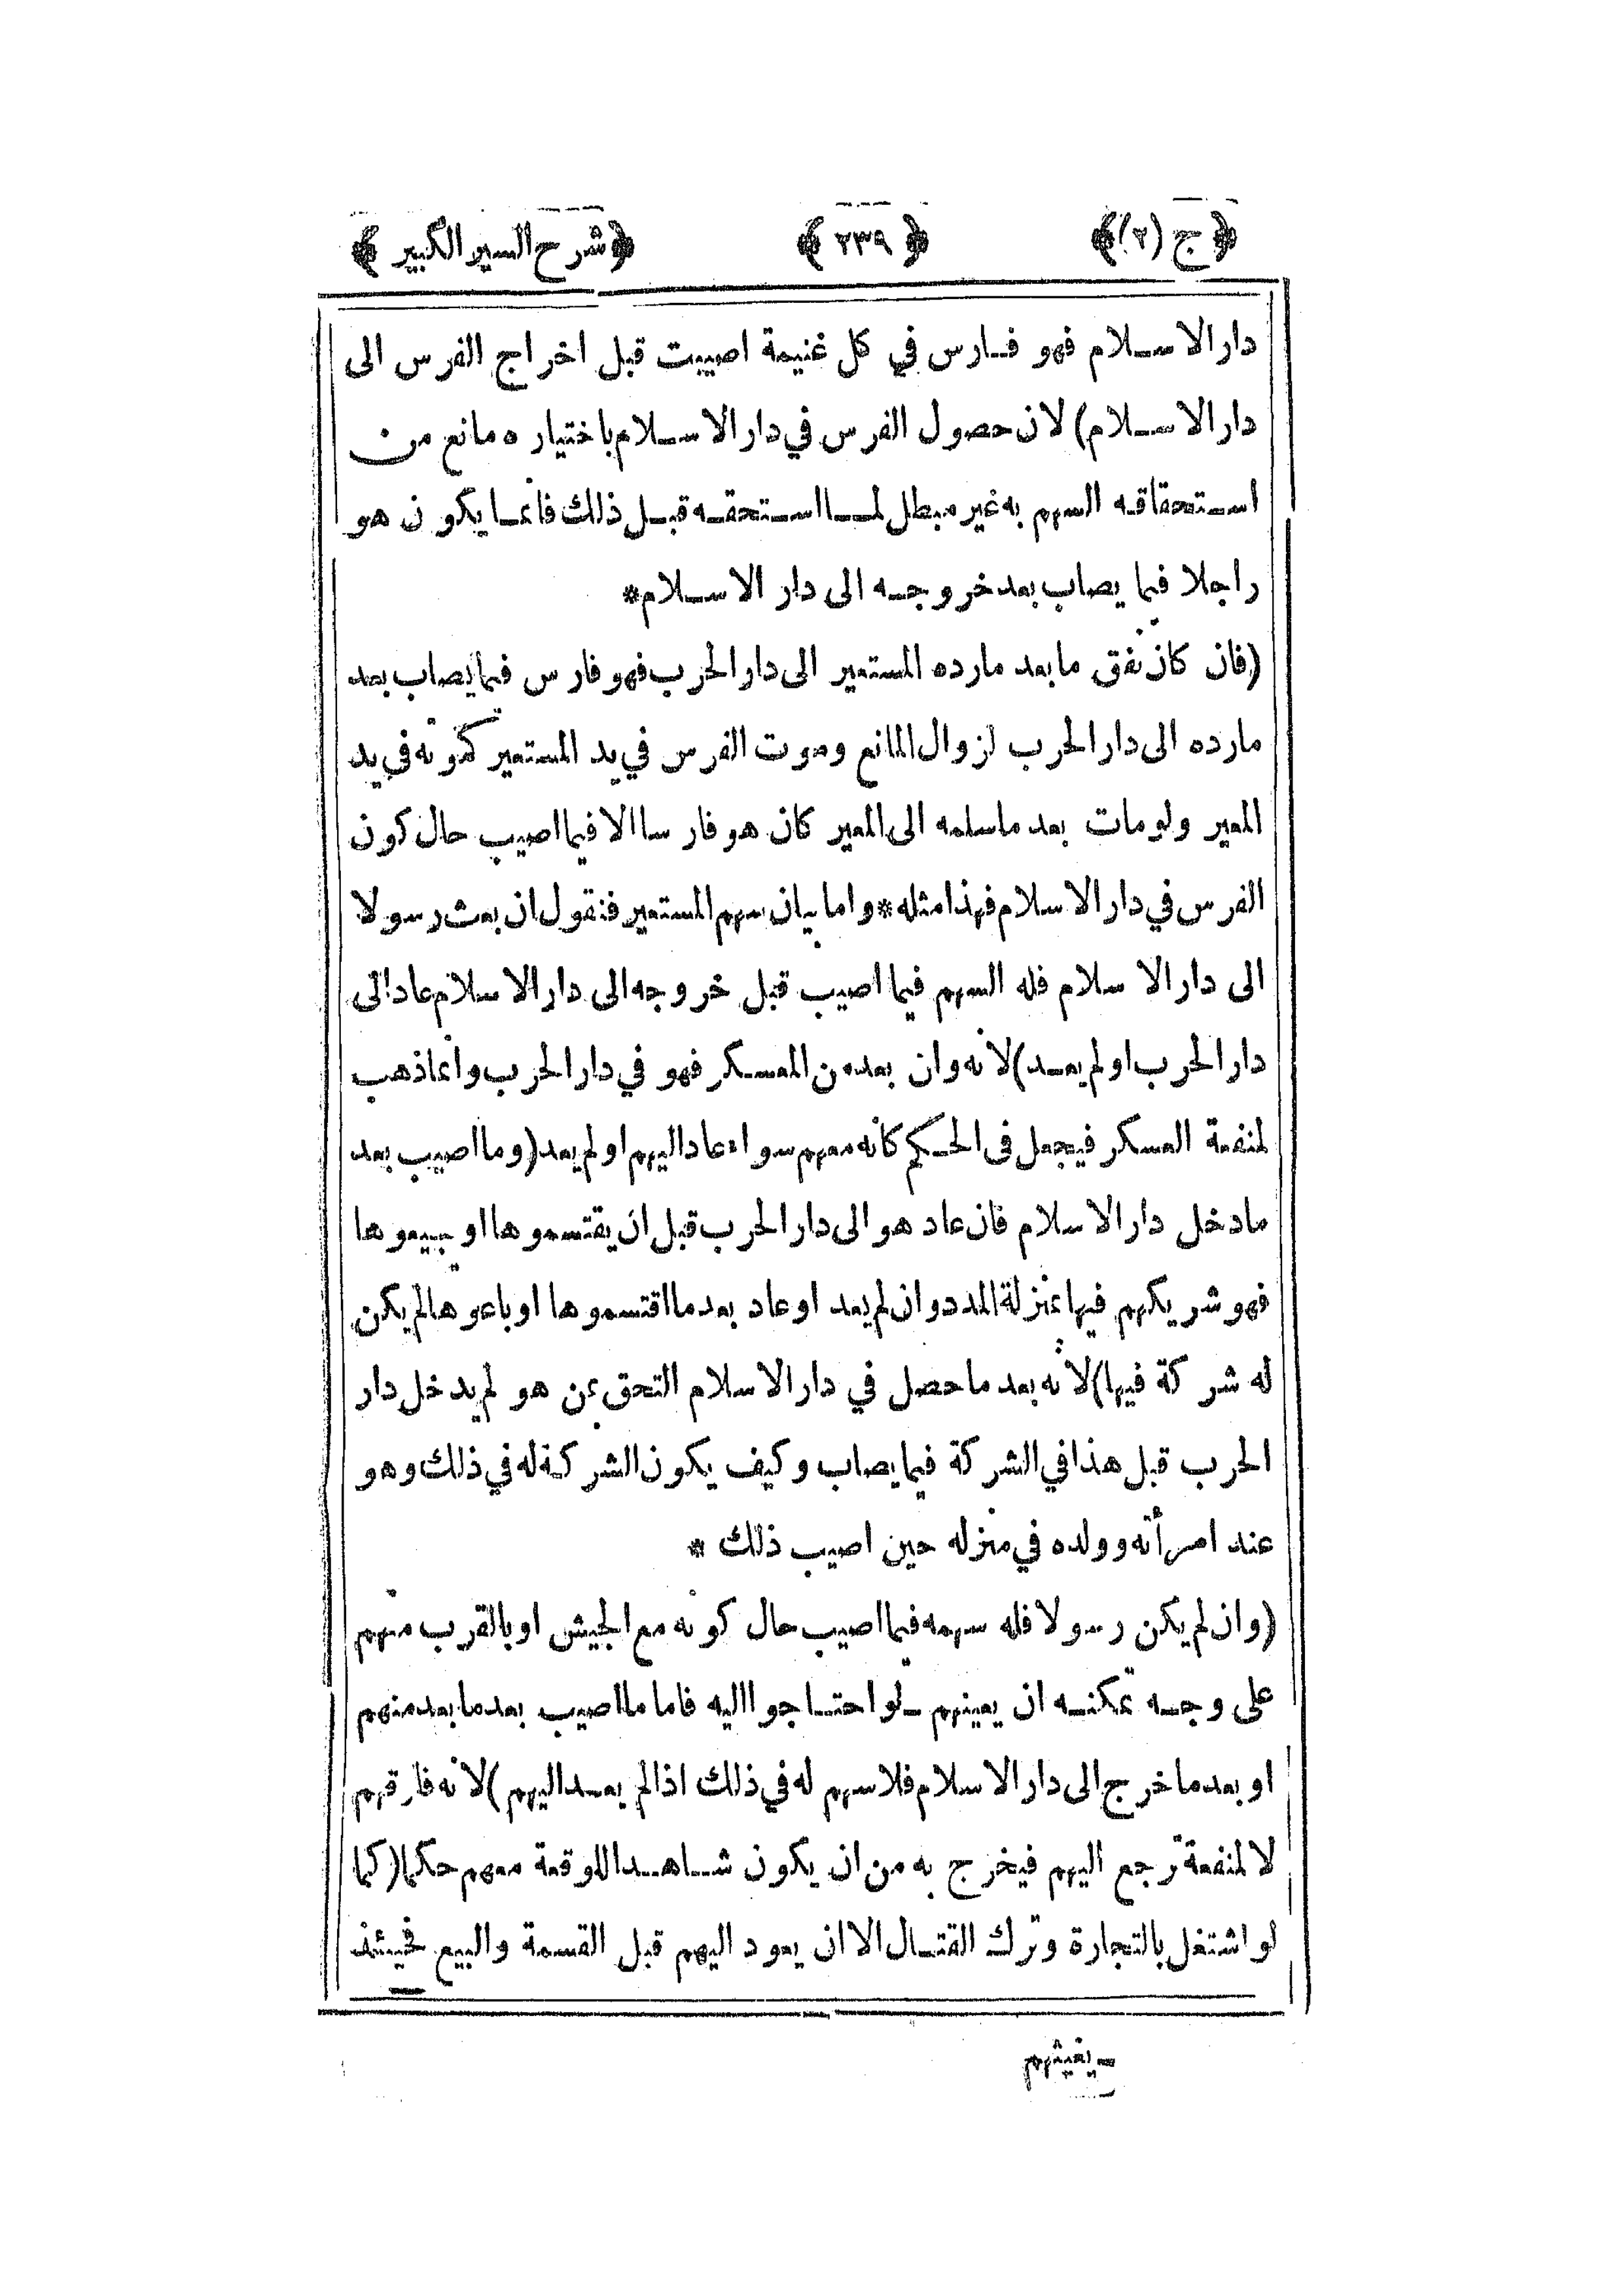 ﴿ج (٢)﴾ ﴿٢٣٩﴾ ﴿شرح السير الكبير﴾
دار الاسلام فهو فارس في كل غنيمة اصيبت قبل اخراج الفرس الى
دار الاسلام) لان حصول الفرس في دار الاسلام باختياره مانع من
استحقاقه السهم به غير مبطل لما استحقه قبل ذلك فانما يكون هو
راجلا فيما يصاب بعد خروجه الى دار الاسلام*
(فان كان نفق ما بعد مارده المستعير الى دار الحرب فهو فارس فيما يصاب بعد
مارده الى دار الحرب لزوال المانع وموت الفرس في يد المستعير كموته في يد
المعير ولومات بعد ماسلمه الى المعير كان هو فارسا الا فيما اصيب حال كون
الفرس في دار الاسلام فهذا مثله* واما بيان سهم المستعير فنقول ان بعث رسولا
الى دار الاسلام فله السهم فيما اصيب قبل خروجه الى دار الاسلام عاد الى
دار الحرب او لم يعد) لانه وان بعد من المعسكر فهو في دار الحرب وانما ذهب
لمنفعة العسكر فيجعل فى الحكم كأنه معهم سواء عاد اليهم او لم يعد (وما اصيب بعد
مادخل دار الاسلام فان عاد هو الى دار الحرب قبل ان يقتسموها او يبيعوها
فهو شريكهم فيها بمنزلة المدد وان لم يعد او عاد بعد ما اقتسموها او باعوها لم يكن
له شركة فيها) لانه بعد ما حصل في دار الاسلام التحق بمن هو لم يدخل دار
الحرب قبل هذا في الشركة فيما يصاب وكيف يكون الشركة له في ذلك وهو
عند امرأته وولده في منزله حين اصيب ذلك *
(وان لم يكن رسولا فله سهمه فيما اصيب حال كونه مع الجيش او بالقرب منهم
على وجه تمكنه ان يعينهم لو احتاجوا اليه فاما ما اصيب بعد ما بعد منهم
او بعد ما خرج الى دار الاسلام فلا سهم له في ذلك اذا لم يعد اليهم) لانه فارقهم
لا لمنفعة ترجع اليهم فيخرج به من ان يكون شاهدا للوقعة معهم حكما (كما
لو اشتغل بالتجارة وترك القتال الا ان يعود اليهم قبل القسمة والبيع فحينئذ
يغيثهم